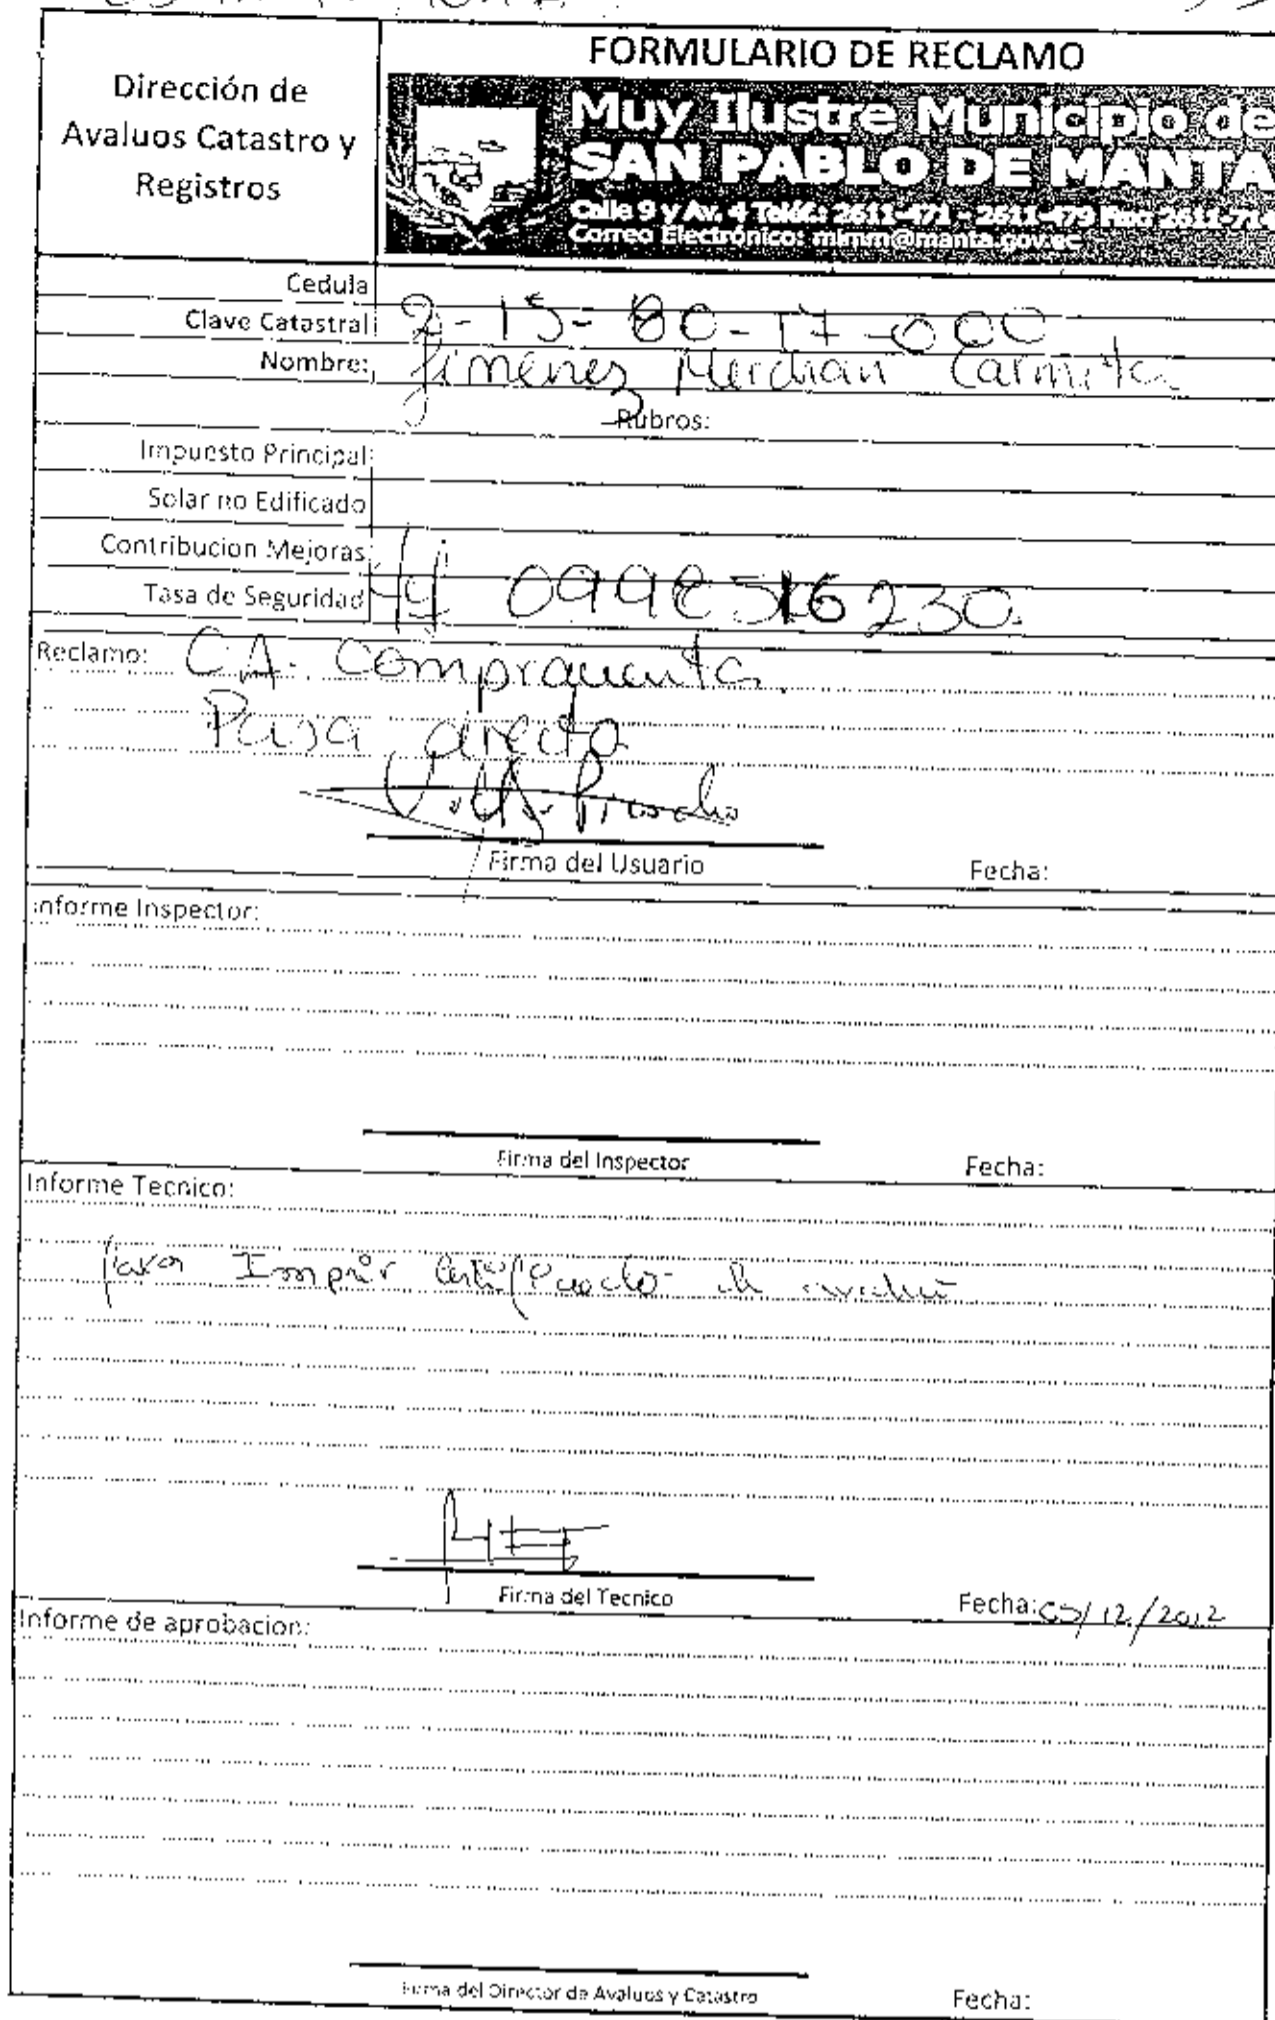 FORMULARIO DE RECLAMO
Dirección de
Avaluos Catastro y
Registros
Muy Ilustre Municipio de
SAN PABLO DE MANTA
Calle 9 y Av. 4 Teléf.: 2611-471 - 2611-479 Fax: 2611-71
Correo Electrónico: mimm@manta.gov.ec
Cedula
Clave Catastral 2-15-80-17-000
Nombre: Jimenez Merchan Carmita
Rubros:
Impuesto Principal:
Solar no Edificado
Contribucion Mejoras
Tasa de Seguridad 0998516230.
Reclamo: CA. Compraventa
Pasa directo
Firma del Usuario Fecha:
Informe Inspector:
Firma del Inspector Fecha:
Informe Tecnico:
Para
Firma del Tecnico Fecha: 05/12/2012
Informe de aprobacion:
Firma del Director de Avaluos y Catastro Fecha: